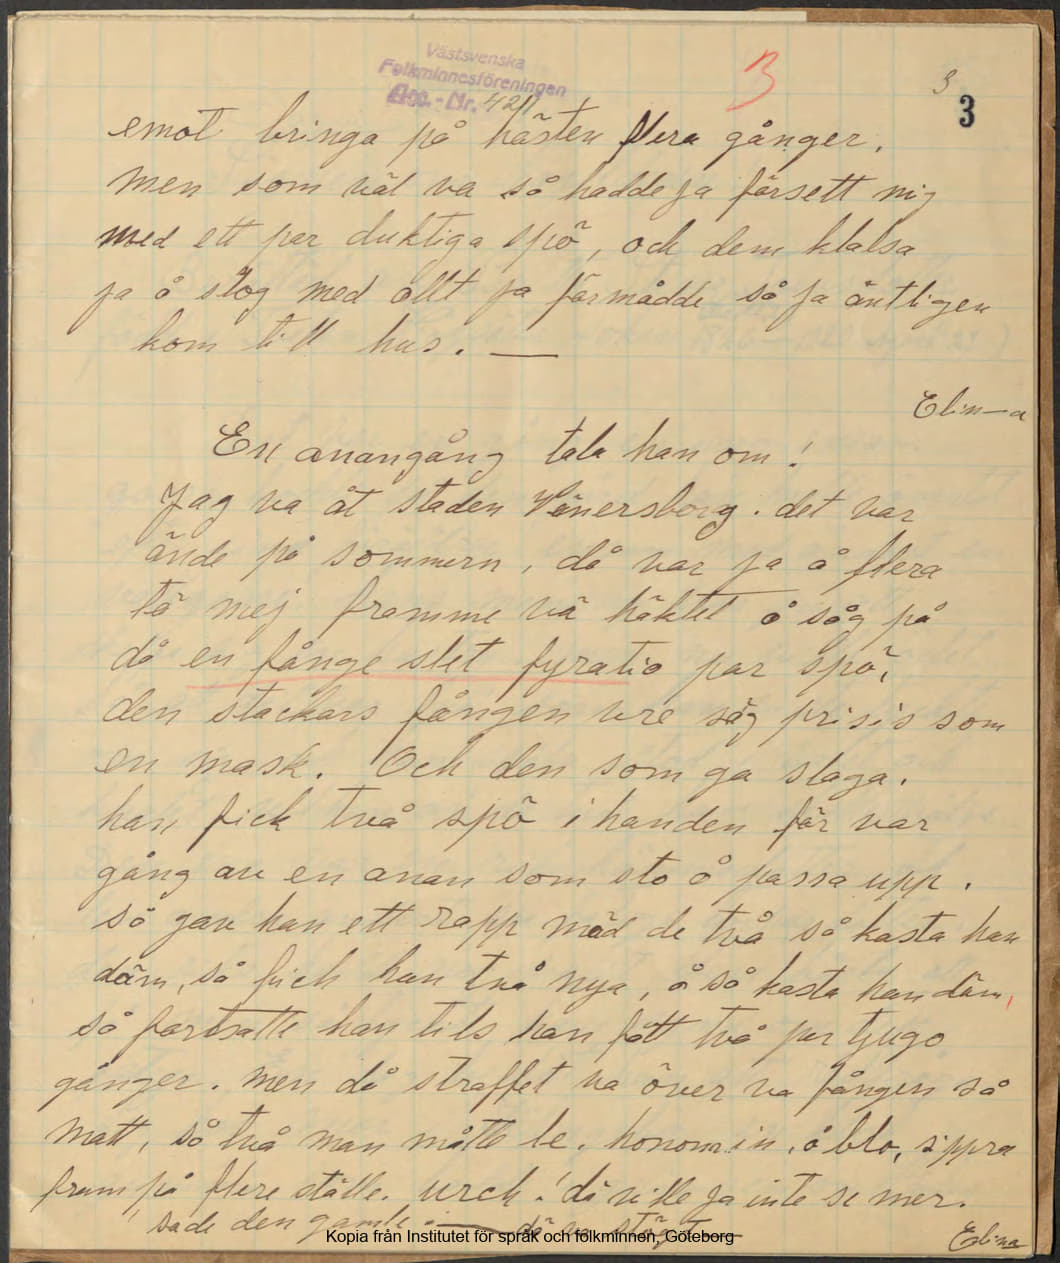 Västsvenska
Folkminnesföreningen
Acc.-Nr. 4211
3
3
3
emot bringa på hästen flera gånger,
men som väl va så hadde ja försett mig
med ett par duktiga spö, och dem klatsa
ja å slog med allt ja förmådde så ja äntligen
kom till hus. —
Elin—a
En anangång tala han om!
Jag va åt staden Vänersborg. det var
ände på sommern, då var ja å flera
tä mej framme vä häktet å såg på
då en fånge slet fyratio par spö,
den stackars fången vre säg prisis som
en mask. Och den som ga slaga.
han fick två spö i handen för var
gång av en anan som sto å passa upp.
så gav han ett rapp mäd de två så kasta han
däm, så fick han två nya, å så kasta han däm,
så fortsatte han tils han fått två par tjugo
gånger. men då straffet va över va fången så
matt, så två man måtte le. honom in, å blo, sippra
fram på flere ställe. urch! då ville ja inte se mer.
sade den gamle. — dä va stögt —
Elina
Kopia från Institutet för språk och folkminnen, Göteborg